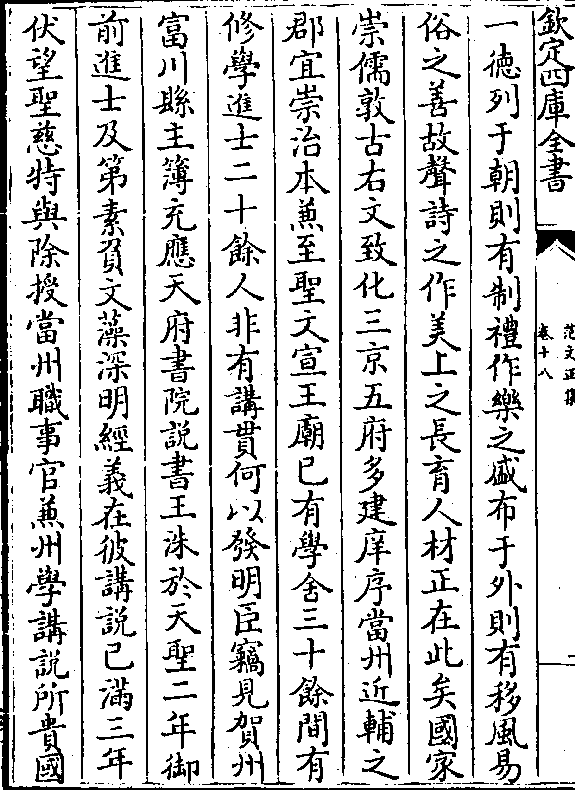 欽定四庫全書
范文正集
卷十八
一徳列于朝則有制禮作樂之盛布于外則有移風易
俗之善故聲詩之作美上之長育人材正在此矣國家
崇儒敦古右文致化三京五府多建庠序當州近輔之
郡宜崇治本兼至聖文宣王廟已有學舍三十餘間有
修學進士二十餘人非有講貫何以發明臣竊見賀州
富川縣主簿充應天府書院説書王洙於天聖二年御
前進士及第素負文藻深明經義在彼講説已滿三年
伏望聖慈特與除授當州職事官兼州學講説所貴國